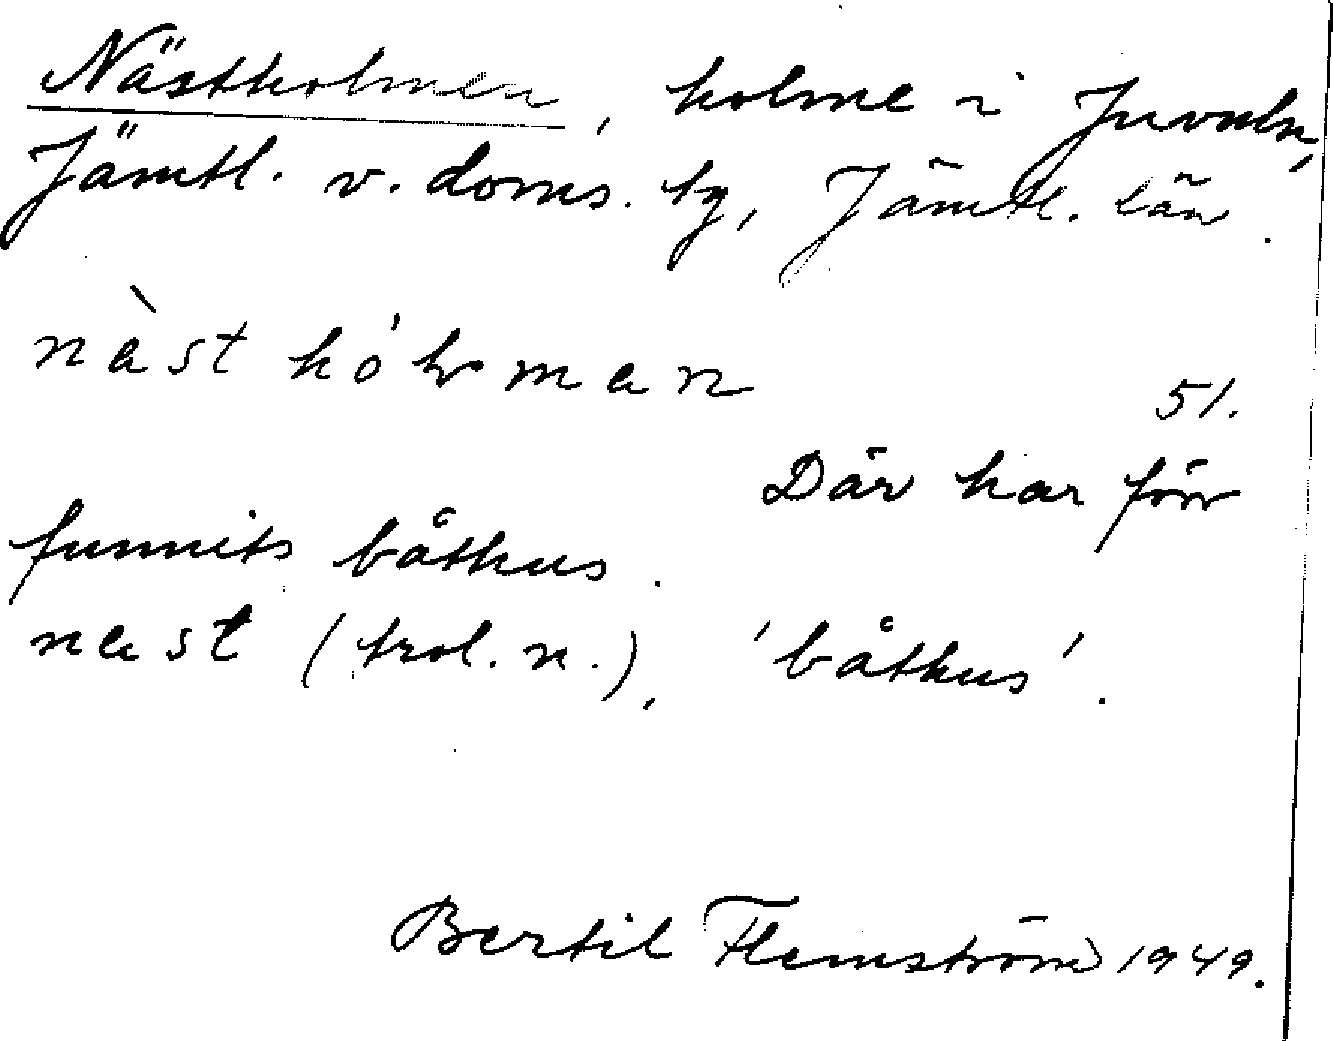 Nästholmen, holme i Juveln,
Jämtl. v. doms. tg, Jämtl. län.
nàst hól man
51.
Där har förr
funnits båthus.
nast (trol. n.), 'båthus'.
Bertil Flemström 1949.